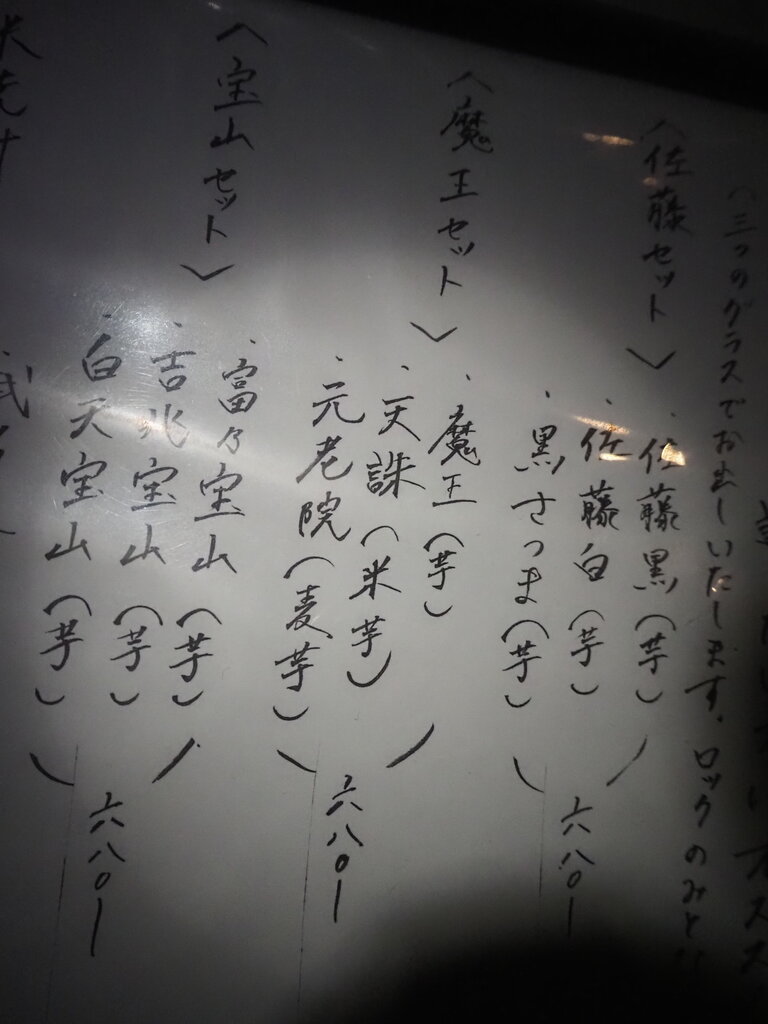 (三つのグラスでお出しいたします。ロックのみと
〈佐藤セット〉
・佐藤黒(芋)
・佐藤白(芋)
・黒さつま(芋)
六八〇ー
〈魔王セット〉
・魔王(芋)
・天誅(米芋)
・元老院(麦芋)
六八〇ー
〈宝山セット〉
・富乃宝山(芋)
・吉兆宝山(芋)
・白天宝山(芋)
六八〇ー